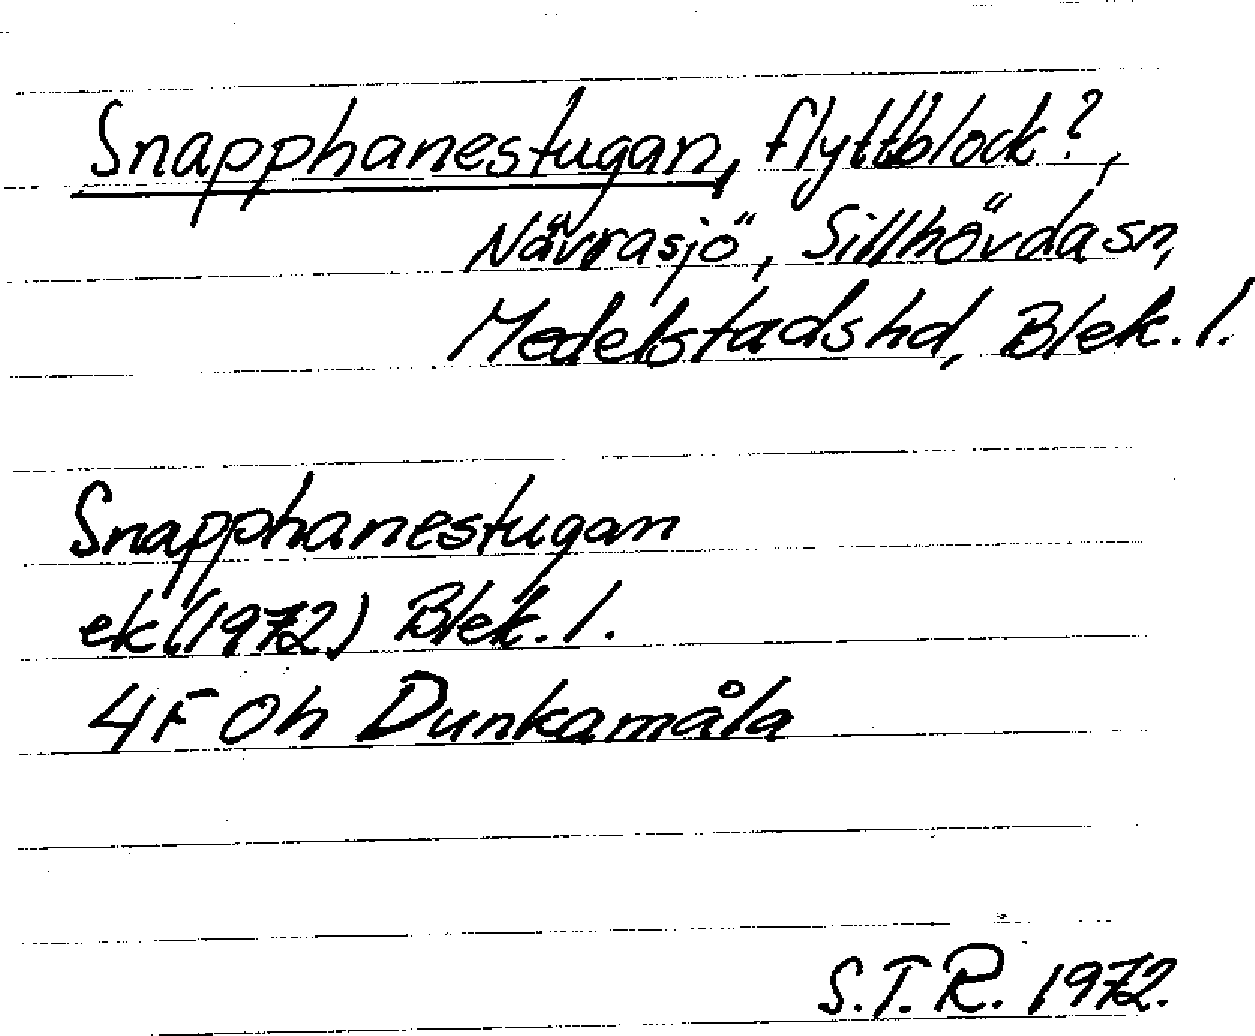 Snapphanestugan, flyttblock?,
Nävrasjö, Sillhövda sn,
Medelstads hd, Blek. l.
Snapphanestugan
ek (1972) Blek. l.
4F 0h Dunkamåla
S.T.R. 1972.